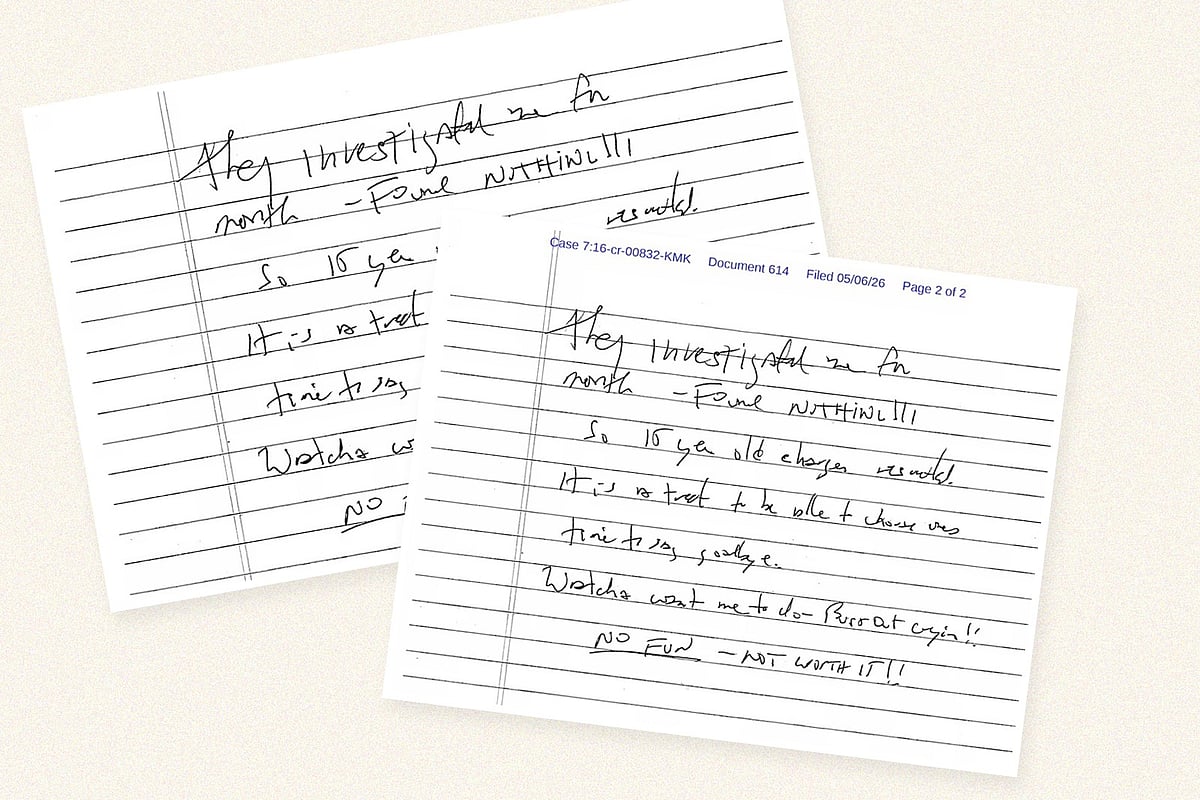 They investigated me for
month – Found NOTHING!!!
resulted.
So 15 year
It is a treat
time to say
Watcha
NO
Case 7:16-cr-00832-KMK Document 614 Filed 05/06/26 Page 2 of 2
They investigated me for
month – Found NOTHING!!!
So 15 year old charges resulted.
It is a treat to be able to choose ones
time to say goodbye.
Watcha want me to do – Bust out cryin!!
NO FUN – NOT WORTH IT!!